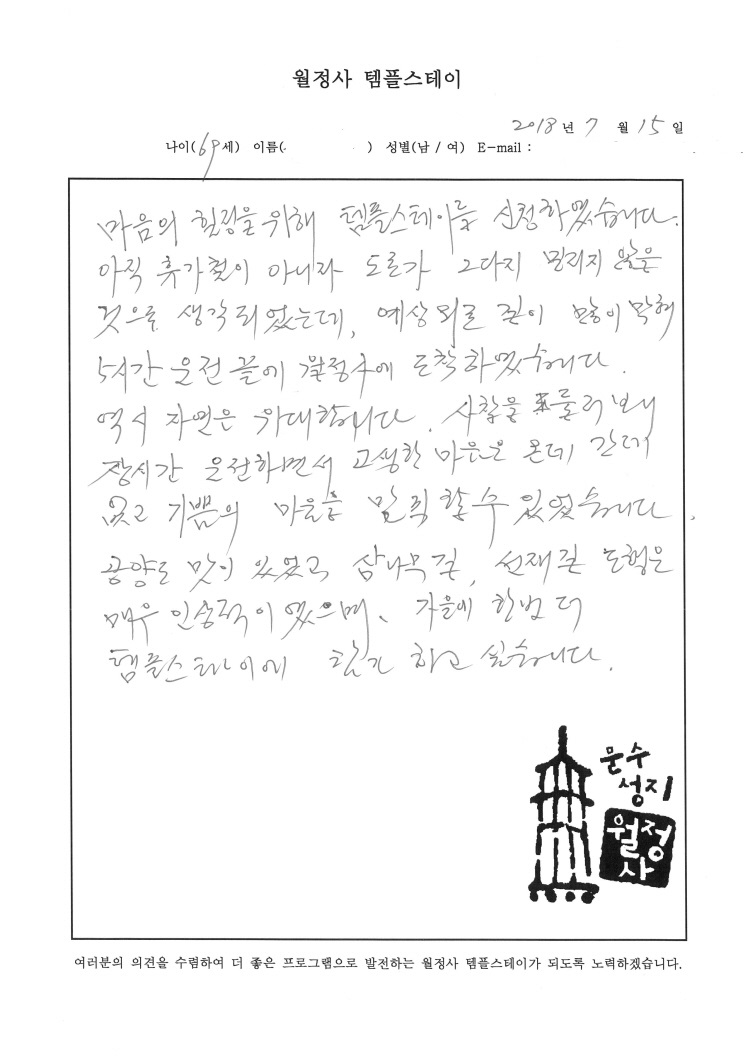 월정사 템플스테이
2018 년 7 월 15 일
나이(69세) 이름( ) 성별(남 / 여) E-mail :
마음의 힐링을 위해 템플스테이를 신청하였습니다.
아직 휴가철이 아니라 도로가 그다지 밀리지 않은
것으로 생각되었는데, 예상외로 길이 많이 막혀
5시간 운전 끝에 월정사에 도착하였습니다.
역시 자연은 위대합니다. 사찰을 둘러보니
장시간 운전하면서 고생한 마음은 온데 간데
없고 기쁨의 마음을 만끽 할 수 있었습니다.
공양도 맛이 있었고 삼나무길, 선재길 산행은
매우 인상적이였으며, 가을에 한번 더
템플스테이에 참가 하고 싶습니다.
문수
성지
월정
사
여러분의 의견을 수렴하여 더 좋은 프로그램으로 발전하는 월정사 템플스테이가 되도록 노력하겠습니다.